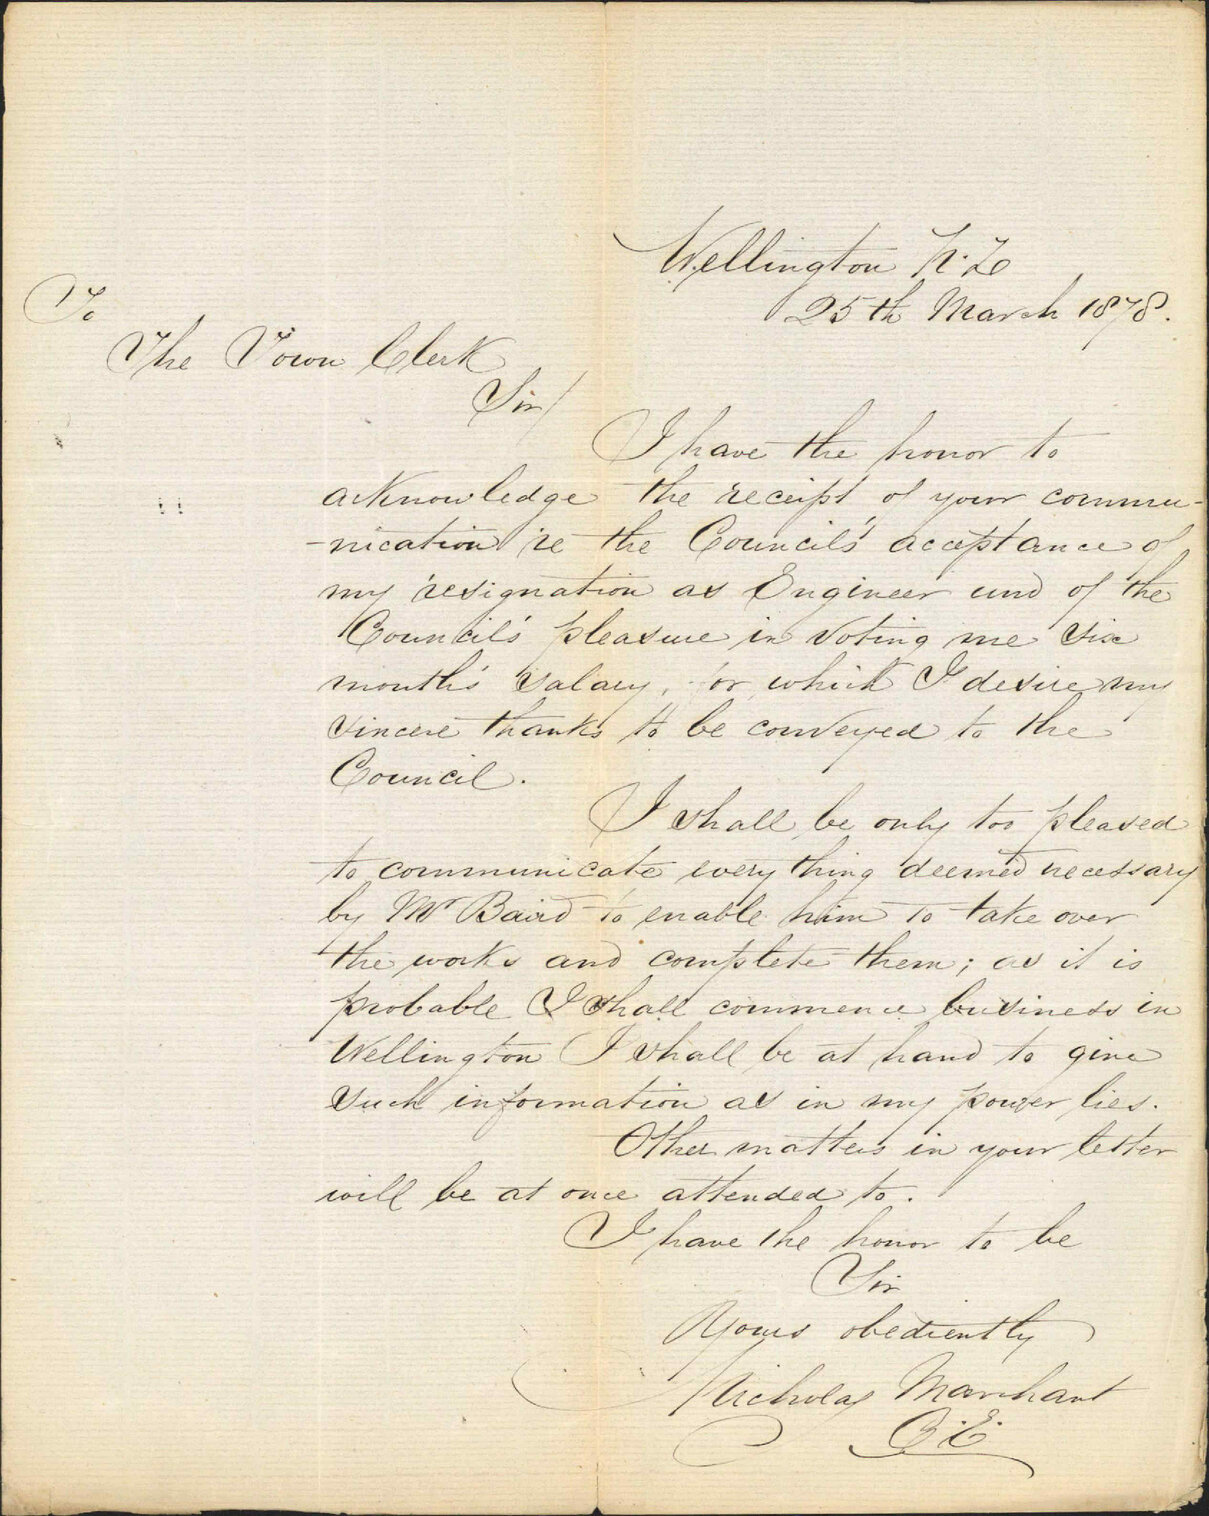 Wellington N.Z
25th March 1878.
To
The Town Clerk
Sir/
I have the honor to
acknowledge the receipt of your commu-
-nication re the Council's acceptance of
my resignation as Engineer and of the
Council's pleasure in voting me six
month's salary, for which I desire my
sincere thanks to be conveyed to the
Council.
I shall be only too pleased
to communicate every thing deemed necessary
by Mr Baird to enable him to take over
the works and complete them; as it is
probable I shall commence business in
Wellington I shall be at hand to give
such information as in my power lies.
Other matters in your letter
will be at once attended to.
I have the honor to be
Sir
Yours obediently
Nicholas Marchant
C.E.